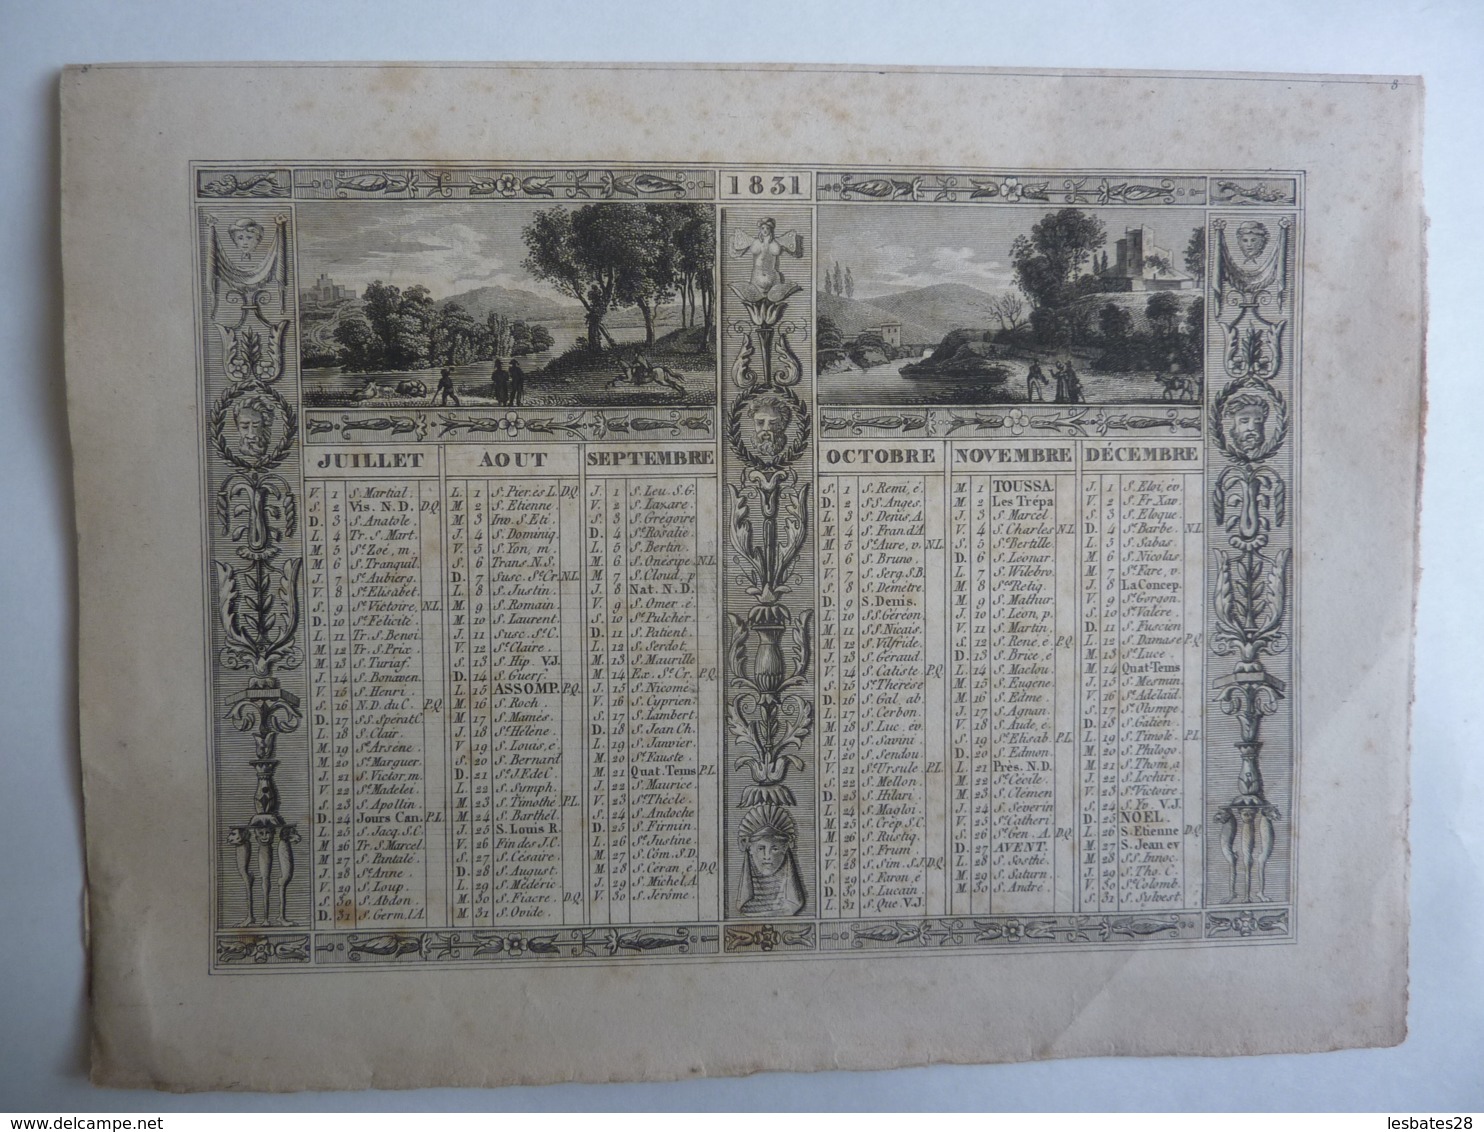 8
8
1831
JUILLET
V. 1 S. Martial.
S. 2 Vis. N. D. D.Q.
D. 3 S. Anatole.
L. 4 Tr. S. Mart.
M. 5 Ste Zoé, m.
M. 6 S. Tranquil.
J. 7 St Aubierg.
V. 8 Ste Elisabet.
S. 9 Ste Victoire, N.L.
D. 10 Ste Félicité
L. 11 Tr. S. Benoi
M. 12 Tr. S. Prix.
M. 13 S. Turiaf.
J. 14 S. Bonaven.
V. 15 S. Henri.
S. 16 N.D. du C. P.Q.
D. 17 SS. Spérat C
L. 18 S. Clair.
M. 19 St Arsène.
M. 20 Ste Marguer.
J. 21 S. Victor, m.
V. 22 Ste Madelei
S. 23 S. Apollin.
D. 24 Jours Can. P.L.
L. 25 S. Jacq. S.C.
M. 26 Tr. S. Marcel
M. 27 S. Pantalé.
J. 28 Ste Anne.
V. 29 S. Loup.
S. 30 S. Abdon.
D. 31 S. Germ. l'A.
AOUT
L. 1 S. Pier. ès L. D.Q.
M. 2 S. Etienne
M. 3 Inv. S. Eti.
J. 4 S. Dominiq.
V. 5 S. Yon, m.
S. 6 Trans. N.S.
D. 7 Susc. Ste Cr. N.L.
L. 8 S. Justin.
M. 9 S. Romain.
M. 10 S. Laurent.
J. 11 Susc. Ste C.
V. 12 Ste Claire.
S. 13 S. Hip. V.J.
D. 14 S. Guerf.
L. 15 ASSOMP. P.Q.
M. 16 S. Roch.
M. 17 S. Mamès.
J. 18 Ste Hélène.
V. 19 S. Louis, é.
S. 20 S. Bernard
D. 21 Ste J.F. de C.
L. 22 S. Symph.
M. 23 S. Timothé. P.L.
M. 24 S. Barthél.
J. 25 S. Louis R.
V. 26 Fin des J.C.
S. 27 S. Césaire.
D. 28 S. August.
L. 29 S. Médéric
M. 30 S. Fiacre. D.Q.
M. 31 S. Ovide.
SEPTEMBRE
J. 1 S. Leu. S.G.
V. 2 S. Lazare.
S. 3 S. Grégoire
D. 4 Ste Rosalie.
L. 5 S. Bertin.
M. 6 S. Onésipe. N.L.
M. 7 S. Cloud, p
J. 8 Nat. N. D.
V. 9 S. Omer. é.
S. 10 Ste Pulcher.
D. 11 S. Patient.
L. 12 S. Serdot.
M. 13 S. Maurille
M. 14 Ex. Ste Cr. P.Q.
J. 15 S. Nicomè.
V. 16 S. Cyprien.
S. 17 S. Lambert.
D. 18 S. Jean Ch.
L. 19 S. Janvier.
M. 20 S. Fauste.
M. 21 Quat. Tems P.L.
J. 22 S. Maurice.
V. 23 Ste Thècle.
S. 24 S. Andoche
D. 25 S. Firmin.
L. 26 Ste Justine.
M. 27 S. Côm. S.D.
M. 28 S. Céran, é D.Q.
J. 29 S. Michel A.
V. 30 S. Jérôme.
OCTOBRE
S. 1 S. Remi, é.
D. 2 SS. Anges.
L. 3 S. Denis, A.
M. 4 S. Fran. d'A
M. 5 Ste Aure, v. N.L.
J. 6 S. Bruno.
V. 7 S. Serg. S.B.
S. 8 S. Démètre.
D. 9 S. Denis.
L. 10 SS. Géréon.
M. 11 SS. Nicais.
M. 12 S. Vilfride.
J. 13 S. Géraud.
V. 14 S. Caliste P.Q.
S. 15 Ste Thérèse
D. 16 S. Gal, ab.
L. 17 S. Cerbon.
M. 18 S. Luc, év.
M. 19 S. Savini.
J. 20 S. Sendou
V. 21 Ste Ursule. P.L.
S. 22 S. Mellon.
D. 23 S. Hilari.
L. 24 S. Magloi.
M. 25 S. Crép. S.C.
M. 26 S. Rustiq.
J. 27 S. Frum
V. 28 S. Sim. S.J. D.Q.
S. 29 S. Faron, é
D. 30 S. Lucain
L. 31 S. Que. V.J.
NOVEMBRE
M. 1 TOUSSA.
M. 2 Les Trépa
J. 3 S. Marcel
V. 4 S. Charles N.L.
S. 5 Ste Bertille.
D. 6 S. Léonar.
L. 7 S. Wilebro.
M. 8 Stes Reliq.
M. 9 S. Mathur.
J. 10 S. Léon, p.
V. 11 S. Martin.
S. 12 S. René, é. P.Q.
D. 13 S. Brice, é
L. 14 S. Maclou.
M. 15 S. Eugène
M. 16 S. Edme.
J. 17 S. Agnan.
V. 18 S. Aude, é.
S. 19 Ste Elisab. P.L.
D. 20 S. Edmon.
L. 21 Près. N.D.
M. 22 Ste Cécile.
M. 23 S. Clémen
J. 24 S. Séverin
V. 25 Ste Catheri
S. 26 Ste Gen. A. D.Q.
D. 27 AVENT.
L. 28 S. Sosthé.
M. 29 S. Saturn.
M. 30 S. André.
DÉCEMBRE
J. 1 S. Eloi, év.
V. 2 S. Fr. Xav.
S. 3 S. Eloque.
D. 4 Ste Barbe. N.L.
L. 5 S. Sabas.
M. 6 S. Nicolas.
M. 7 Ste Fare, v.
J. 8 La Concep.
V. 9 Ste Gorgon.
S. 10 Ste Valère.
D. 11 S. Fuscien
L. 12 S. Damase P.Q.
M. 13 Ste Luce.
M. 14 Quat-Tems
J. 15 S. Mesmin.
V. 16 Ste Adélaïd.
S. 17 Ste Olympe.
D. 18 S. Gatien.
L. 19 S. Timolé. P.L.
M. 20 S. Philogo.
M. 21 S. Thom, a
J. 22 S. Ischiri.
V. 23 Ste Victoire.
S. 24 S. Yv. V.J.
D. 25 NOËL.
L. 26 S. Etienne D.Q.
M. 27 S. Jean ev
M. 28 SS. Innoc.
J. 29 S. Tho. C.
V. 30 Ste Colomb.
S. 31 S. Sylvest.
© delcampe.net
lesbates28